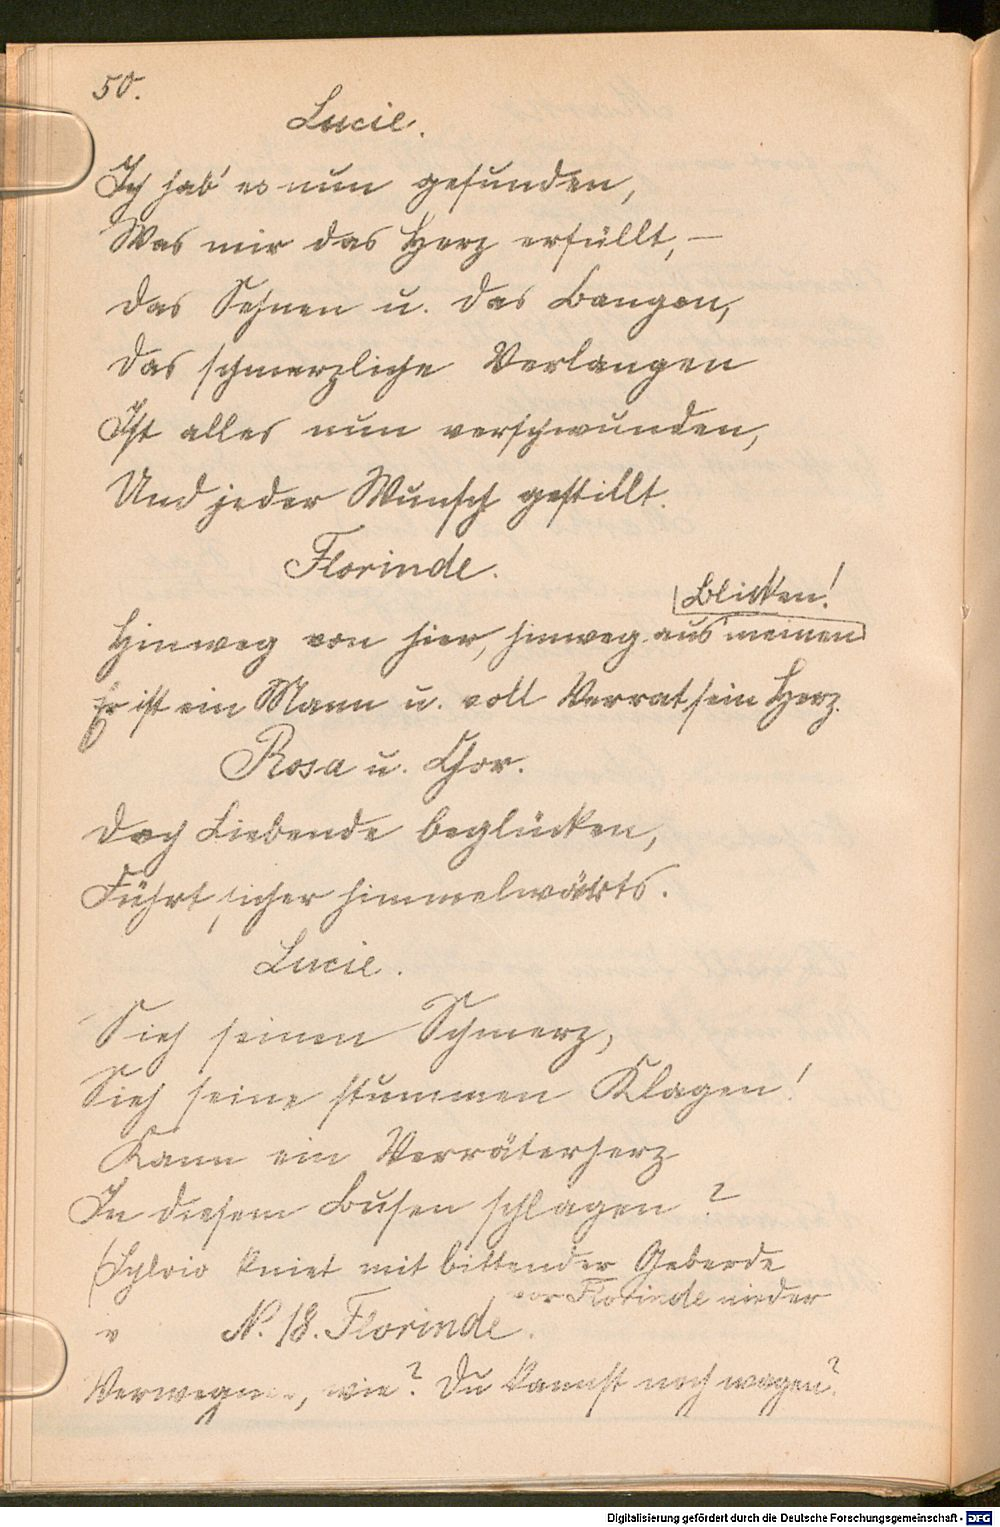 50.
Lucie.
Ich hab' es nun gefunden,
Was mir das Herz erfüllt, –
Das Sehnen u. das Bangen,
Das schmerzliche Verlangen
Ist alles nun verschwunden,
Und jeder Wunsch gestillt.
Florinde.
Blicken!
Hinweg von hier, hinweg aus meinen
Er ist ein Mann u. voll Verrat sein Herz.
Rosa u. Chor.
Doch Liebende beglücken,
Führt sicher himmelwärts.
Lucie.
Sieh seinen Schmerz,
Sieh seine stummen Klagen!
Kann ein Verräterherz
In diesem Busen schlagen?
(Sylvio kniet mit bittender Geberde
vor Florinde nieder
v N. 18. Florinde.
Verwegner, wie? Du kannst noch wagen?
Digitalisierung gefördert durch die Deutsche Forschungsgemeinschaft - DFG